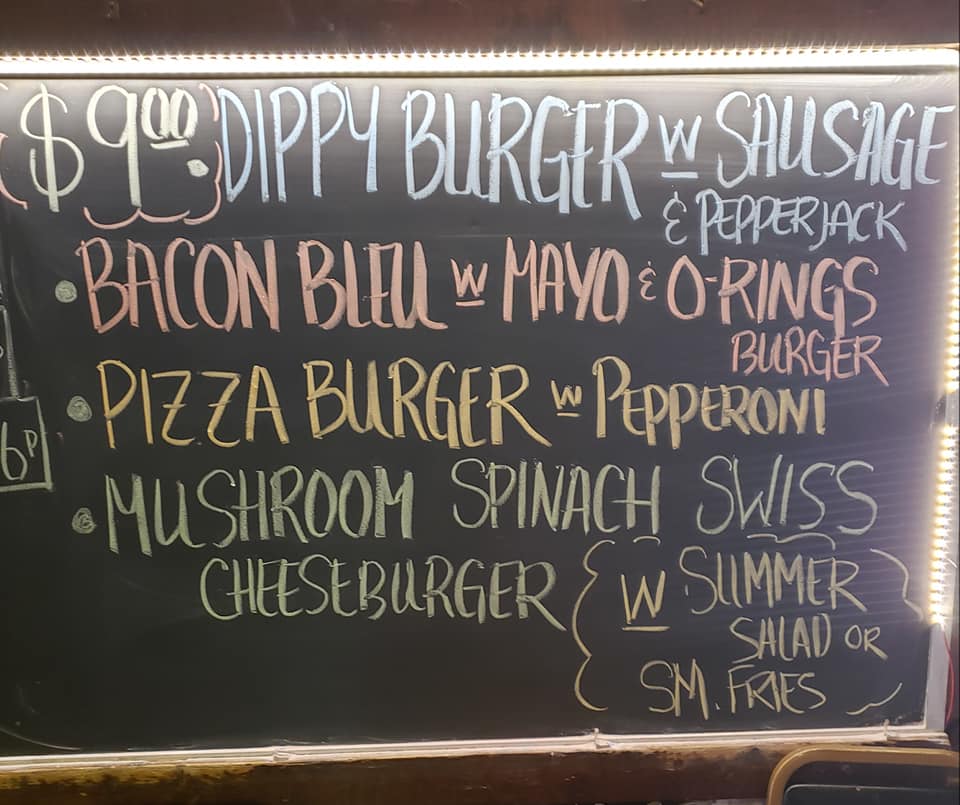 $9.00 DIPPY BURGER W SAUSAGE
& PEPPERJACK
• BACON BLEU W MAYO & O-RINGS
BURGER
• PIZZA BURGER W PEPPERONI
• MUSHROOM SPINACH SWISS
CHEESEBURGER
W SUMMER
SALAD OR
SM. FRIES
6P